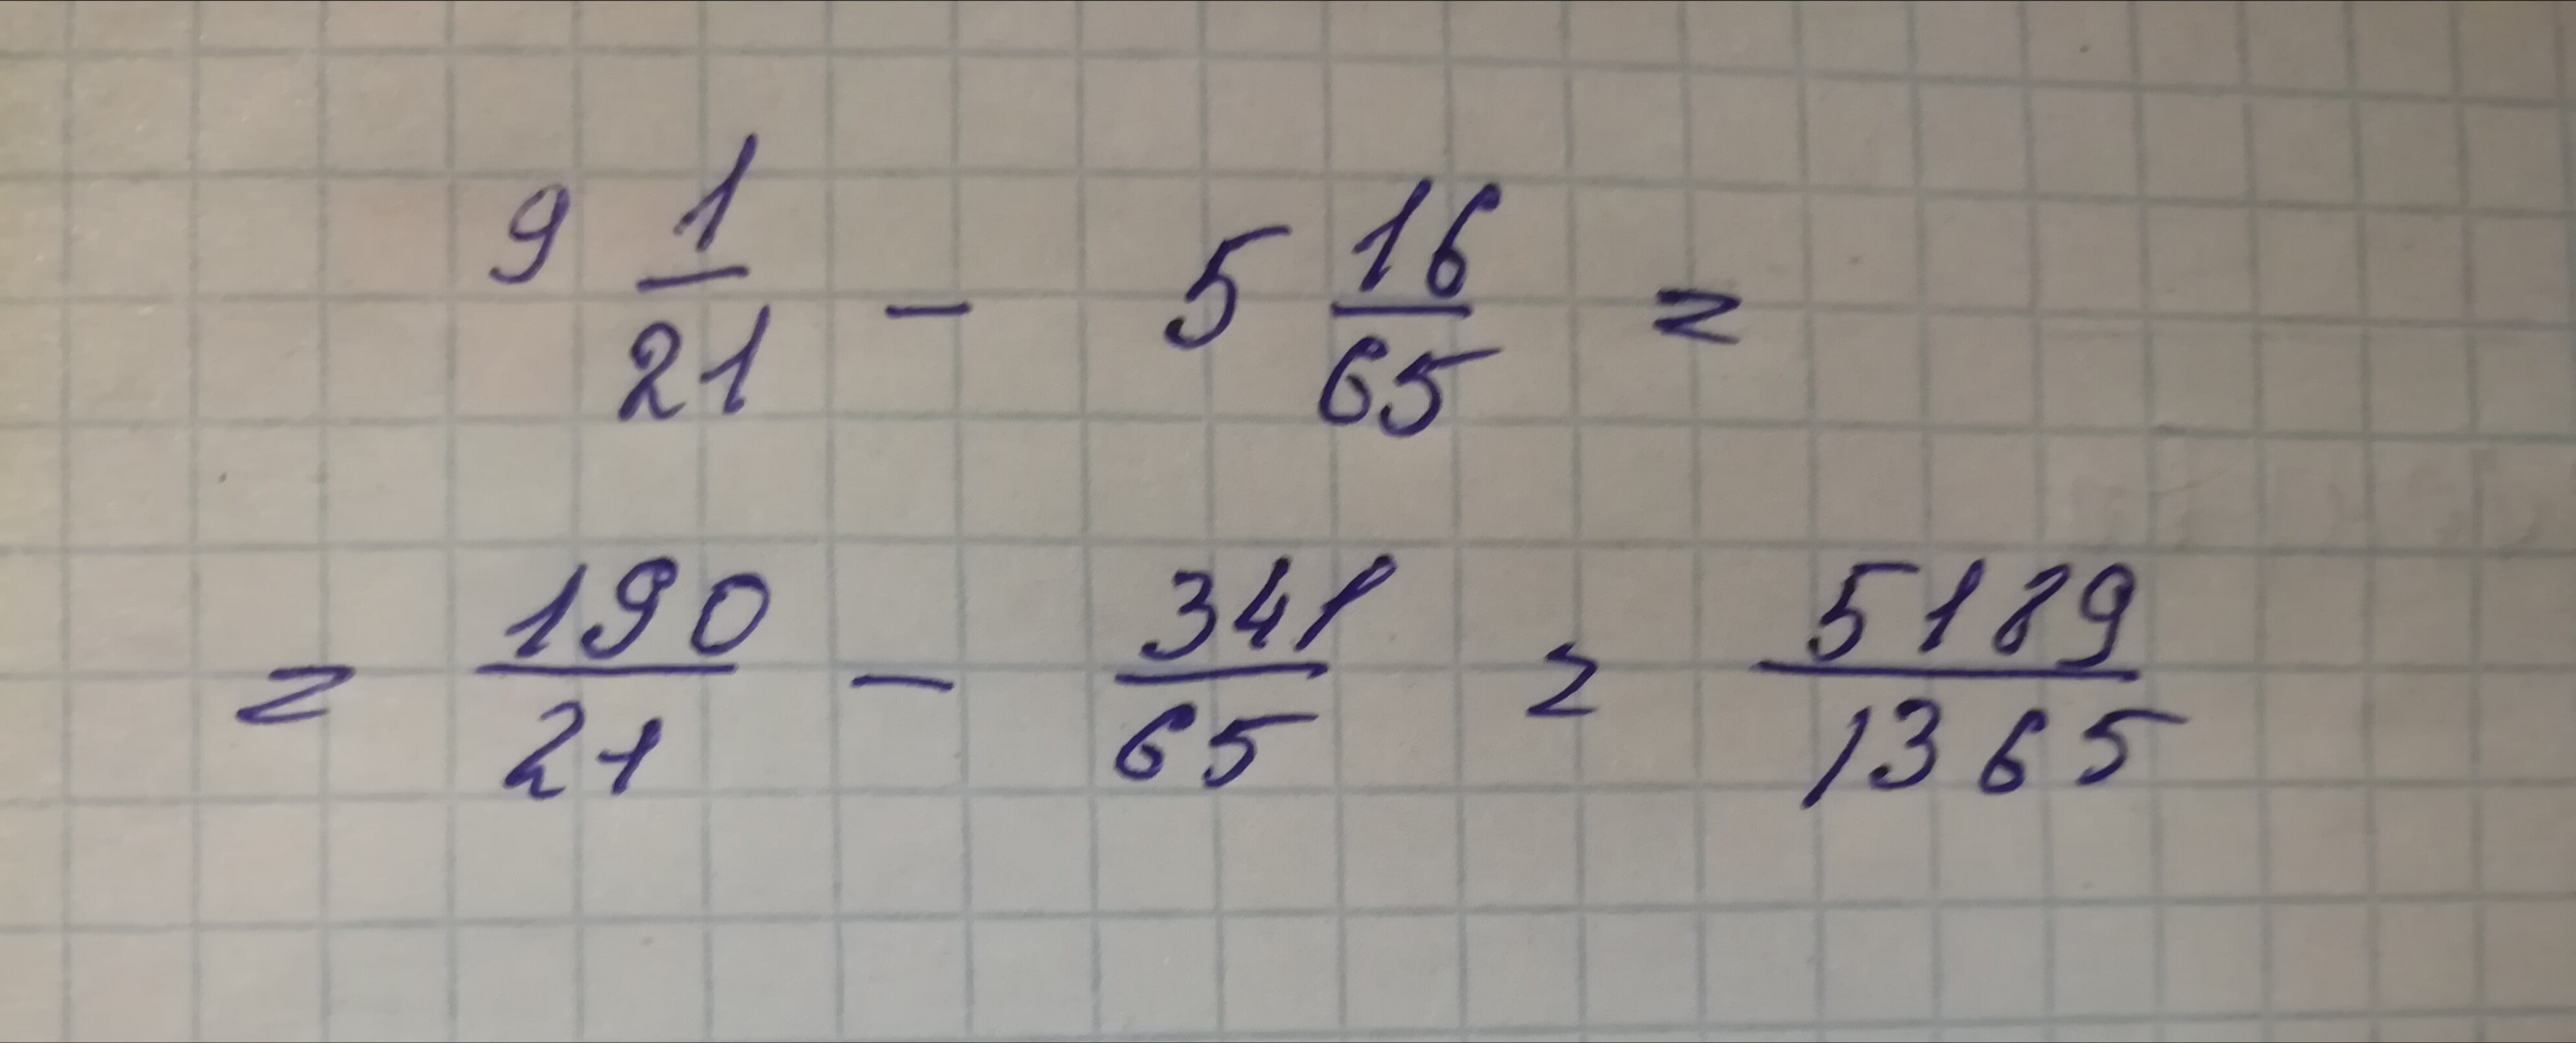 9 1/21 - 5 16/65 =
= 190/21 - 341/65 = 5189/1365